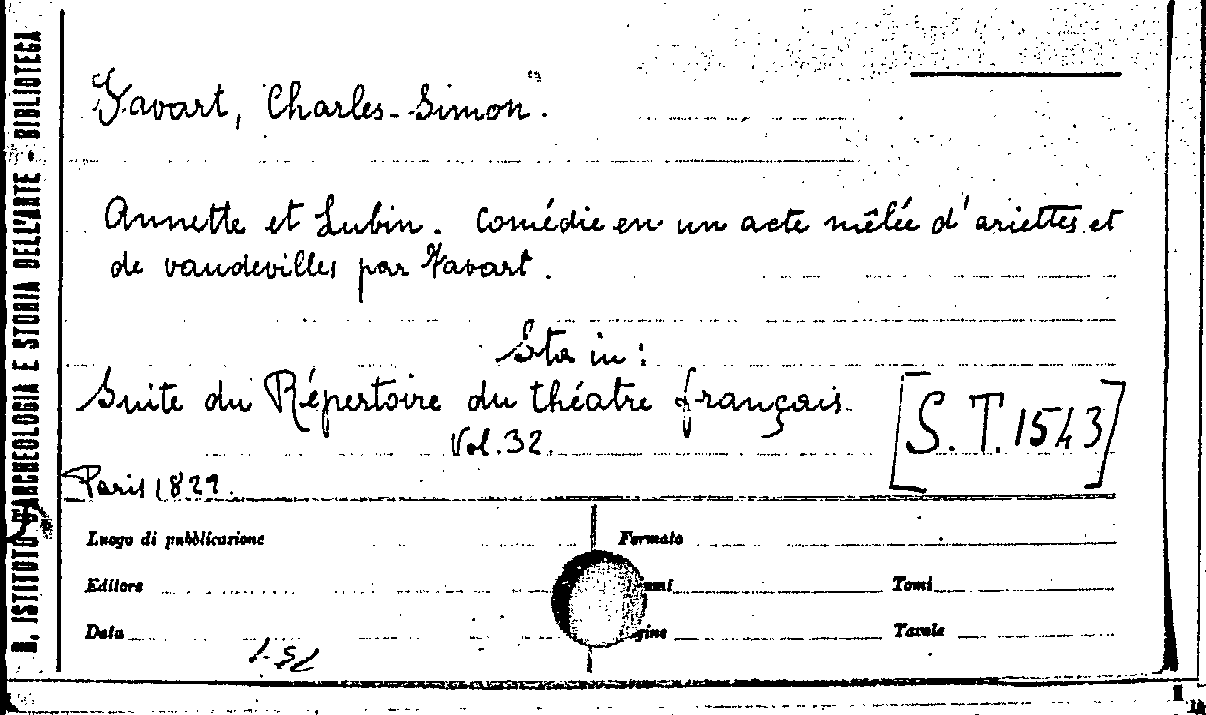 R. ISTITUTO D'ARCHEOLOGIA E STORIA DELL'ARTE - BIBLIOTECA
Favart, Charles-Simon.
Annette et Lubin. Comédie en un acte mêlée d'ariettes et
de vaudevilles par Favart.
Sta in:
Suite du Répertoire du théatre français.
Vol. 32.
[S.T.1543]
Paris 1829.
Luogo di pubblicazione
Formato
Editore
Tomi
Data
Tavole